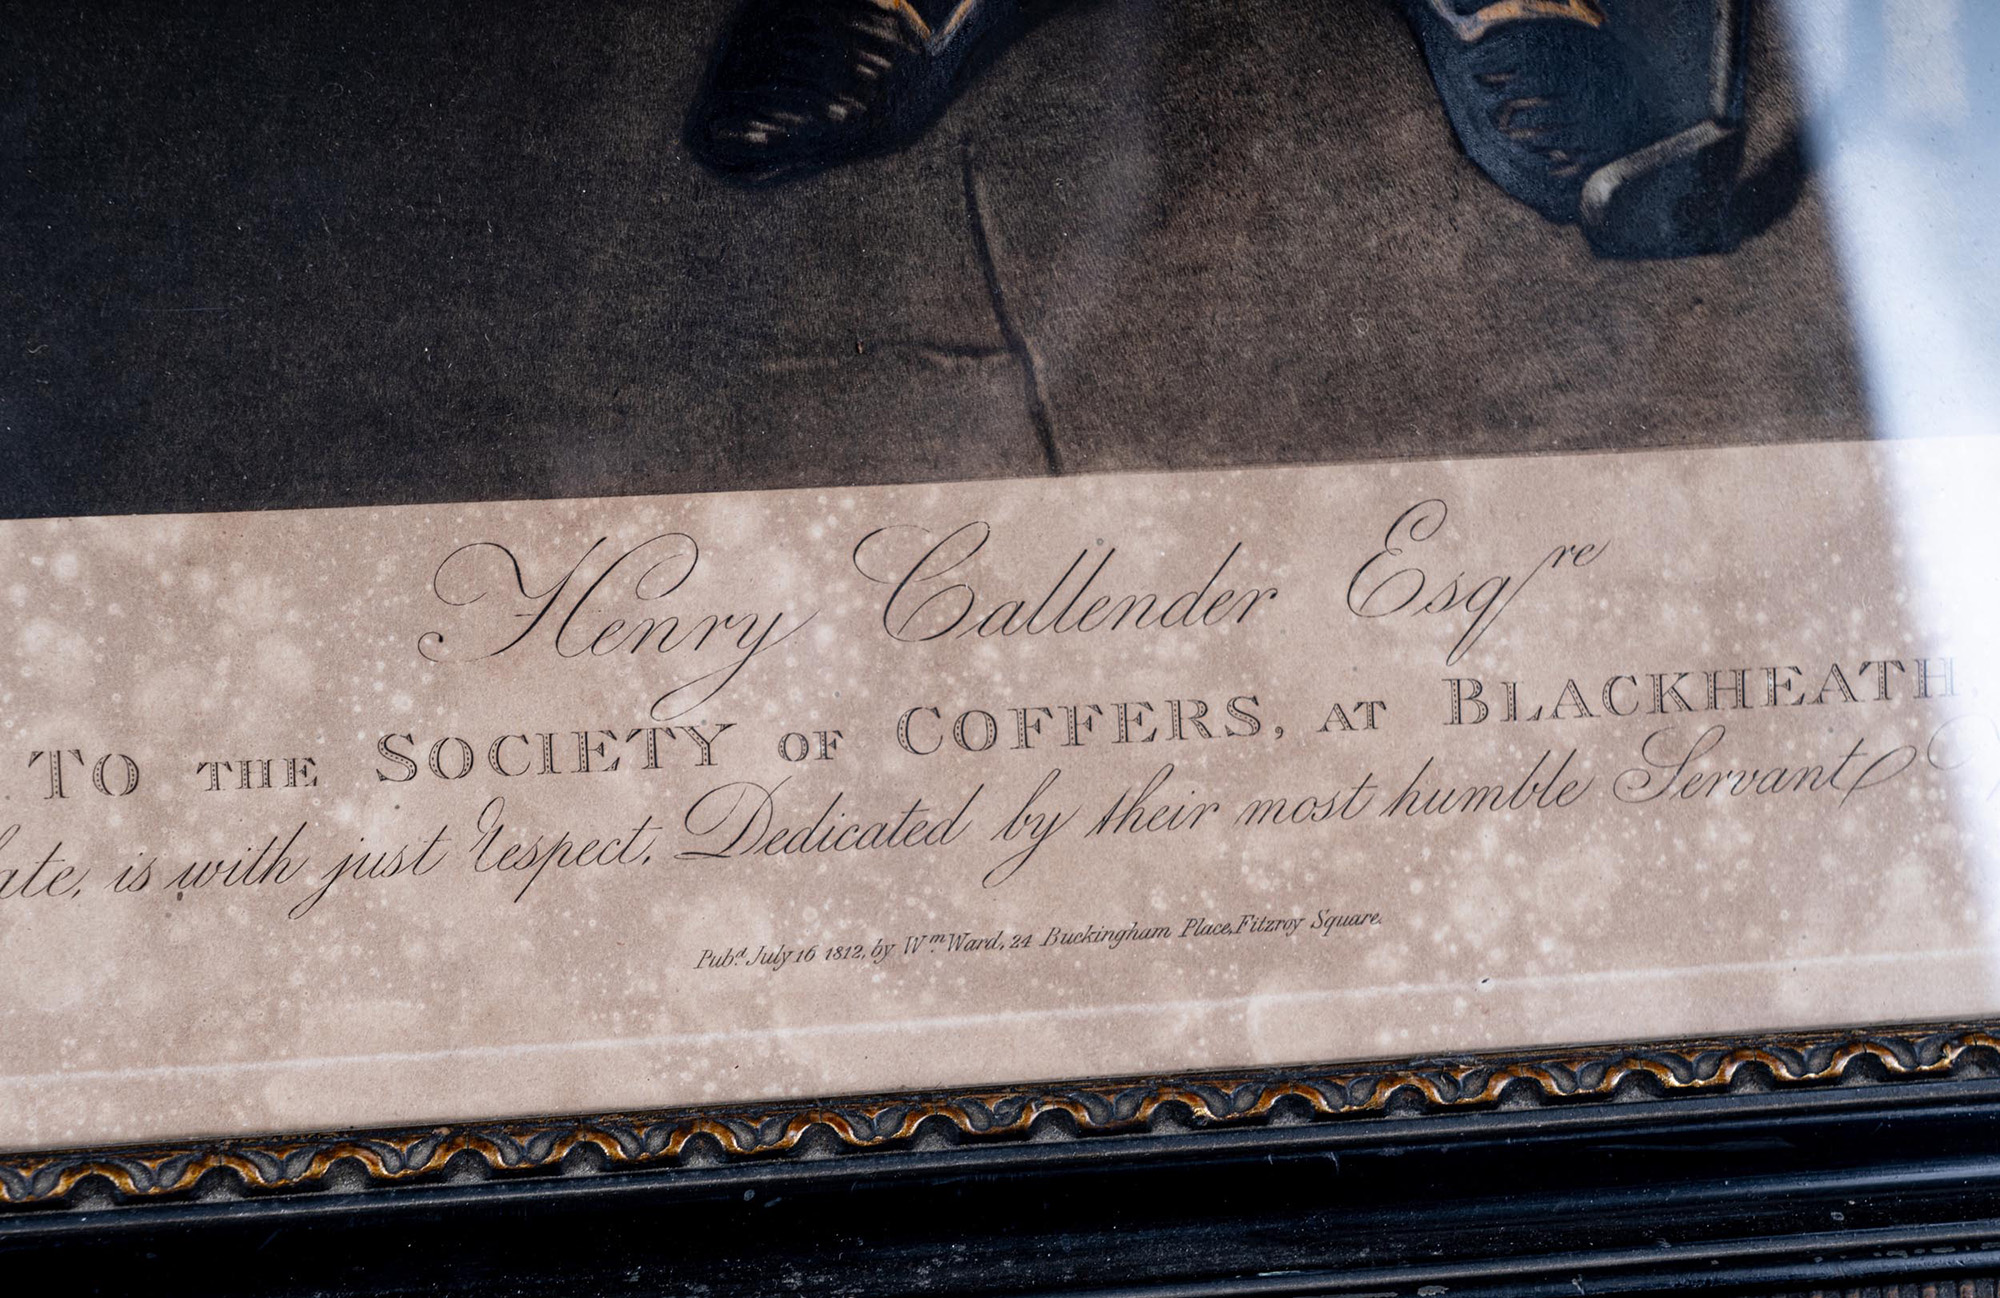 Henry Callender Esqre
TO THE SOCIETY OF COFFERS, AT BLACKHEATH,
is with just respect, Dedicated by their most humble Servant
Pubd. July 16 1812, by Wm. Ward, 24 Buckingham Place, Fitzroy Square.